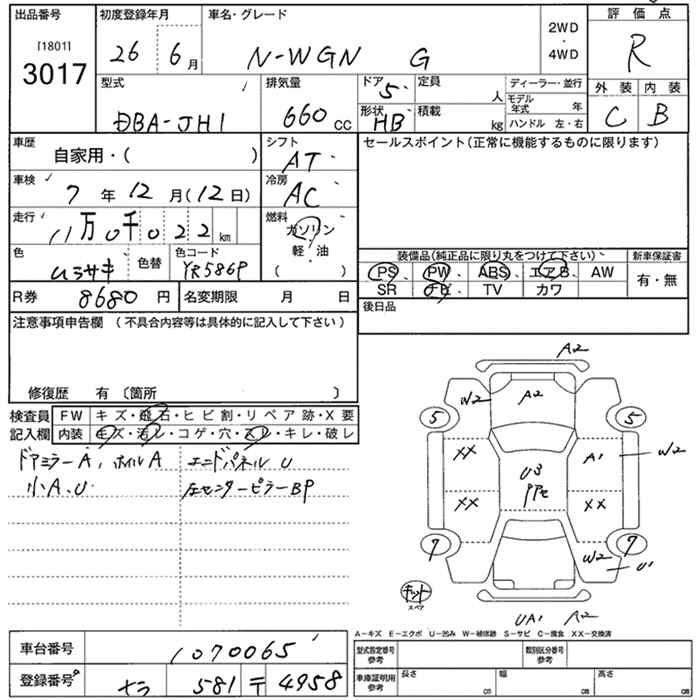 出品番号 初度登録年月 車名・グレード 評価点
[1801] 3017 26 6月 N-WGN G 2WD・4WD R
型式 排気量 ドア 5 定員 人 ディーラー・並行 外装 内装
DBA-JH1 660cc 形状 HB 積載 kg モデル年式 年 C B
ハンドル 左・右
車歴 シフト セールスポイント(正常に機能するものに限ります)
自家用・( ) AT
車検 7年12月(12日) 冷房 AC
走行 11万0千022km 燃料 ガソリン
軽・油
( )
色 ムラサキ 色替 色コード YR586P
装備品(純正品に限り丸をつけて下さい) 新車保証書
PS、PW、ABS、エアB、AW 有・無
SR ナビ、TV カワ
R券 8680円 名変期限 月 日 後日品
注意事項申告欄 (不具合内容等は具体的に記入して下さい)
修復歴 有 〔箇所 〕
検査員記入欄 FW キズ・飛石・ヒビ割・リペア跡・X要
内装 キズ・汚レ・コゲ・穴・スレ・キレ・破レ
ドアミラーA、ホイルA エンドパネルU
小A、U 左センターピラーBP
A2
W2 A2
5 5
XX A1 W2
U3
PPセ
XX XX
7 W2 7 U1
キット
スペア
UA1 A2
A-キズ E-エクボ U-凹み W-補修跡 S-サビ C-腐食 XX-交換済
車台番号 1070065 型式指定番号 参考 類別区分番号 参考
登録番号 581 4958 車庫証明用 参考 長さ cm 幅 cm 高さ cm